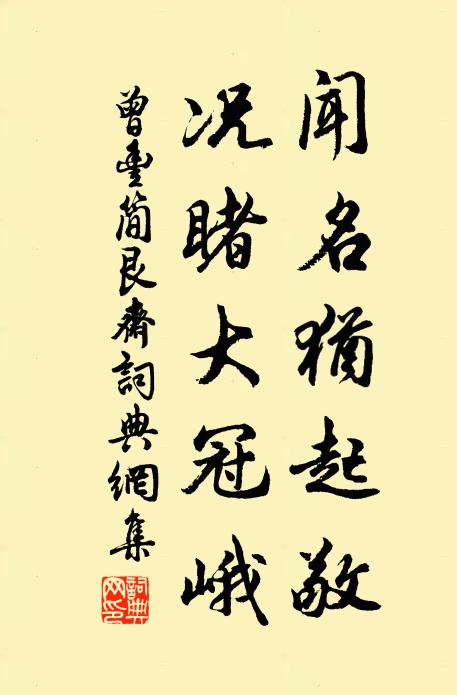 闻名犹起敬
况睹大冠峨
曾丰简艮斋词典网集
词典网印